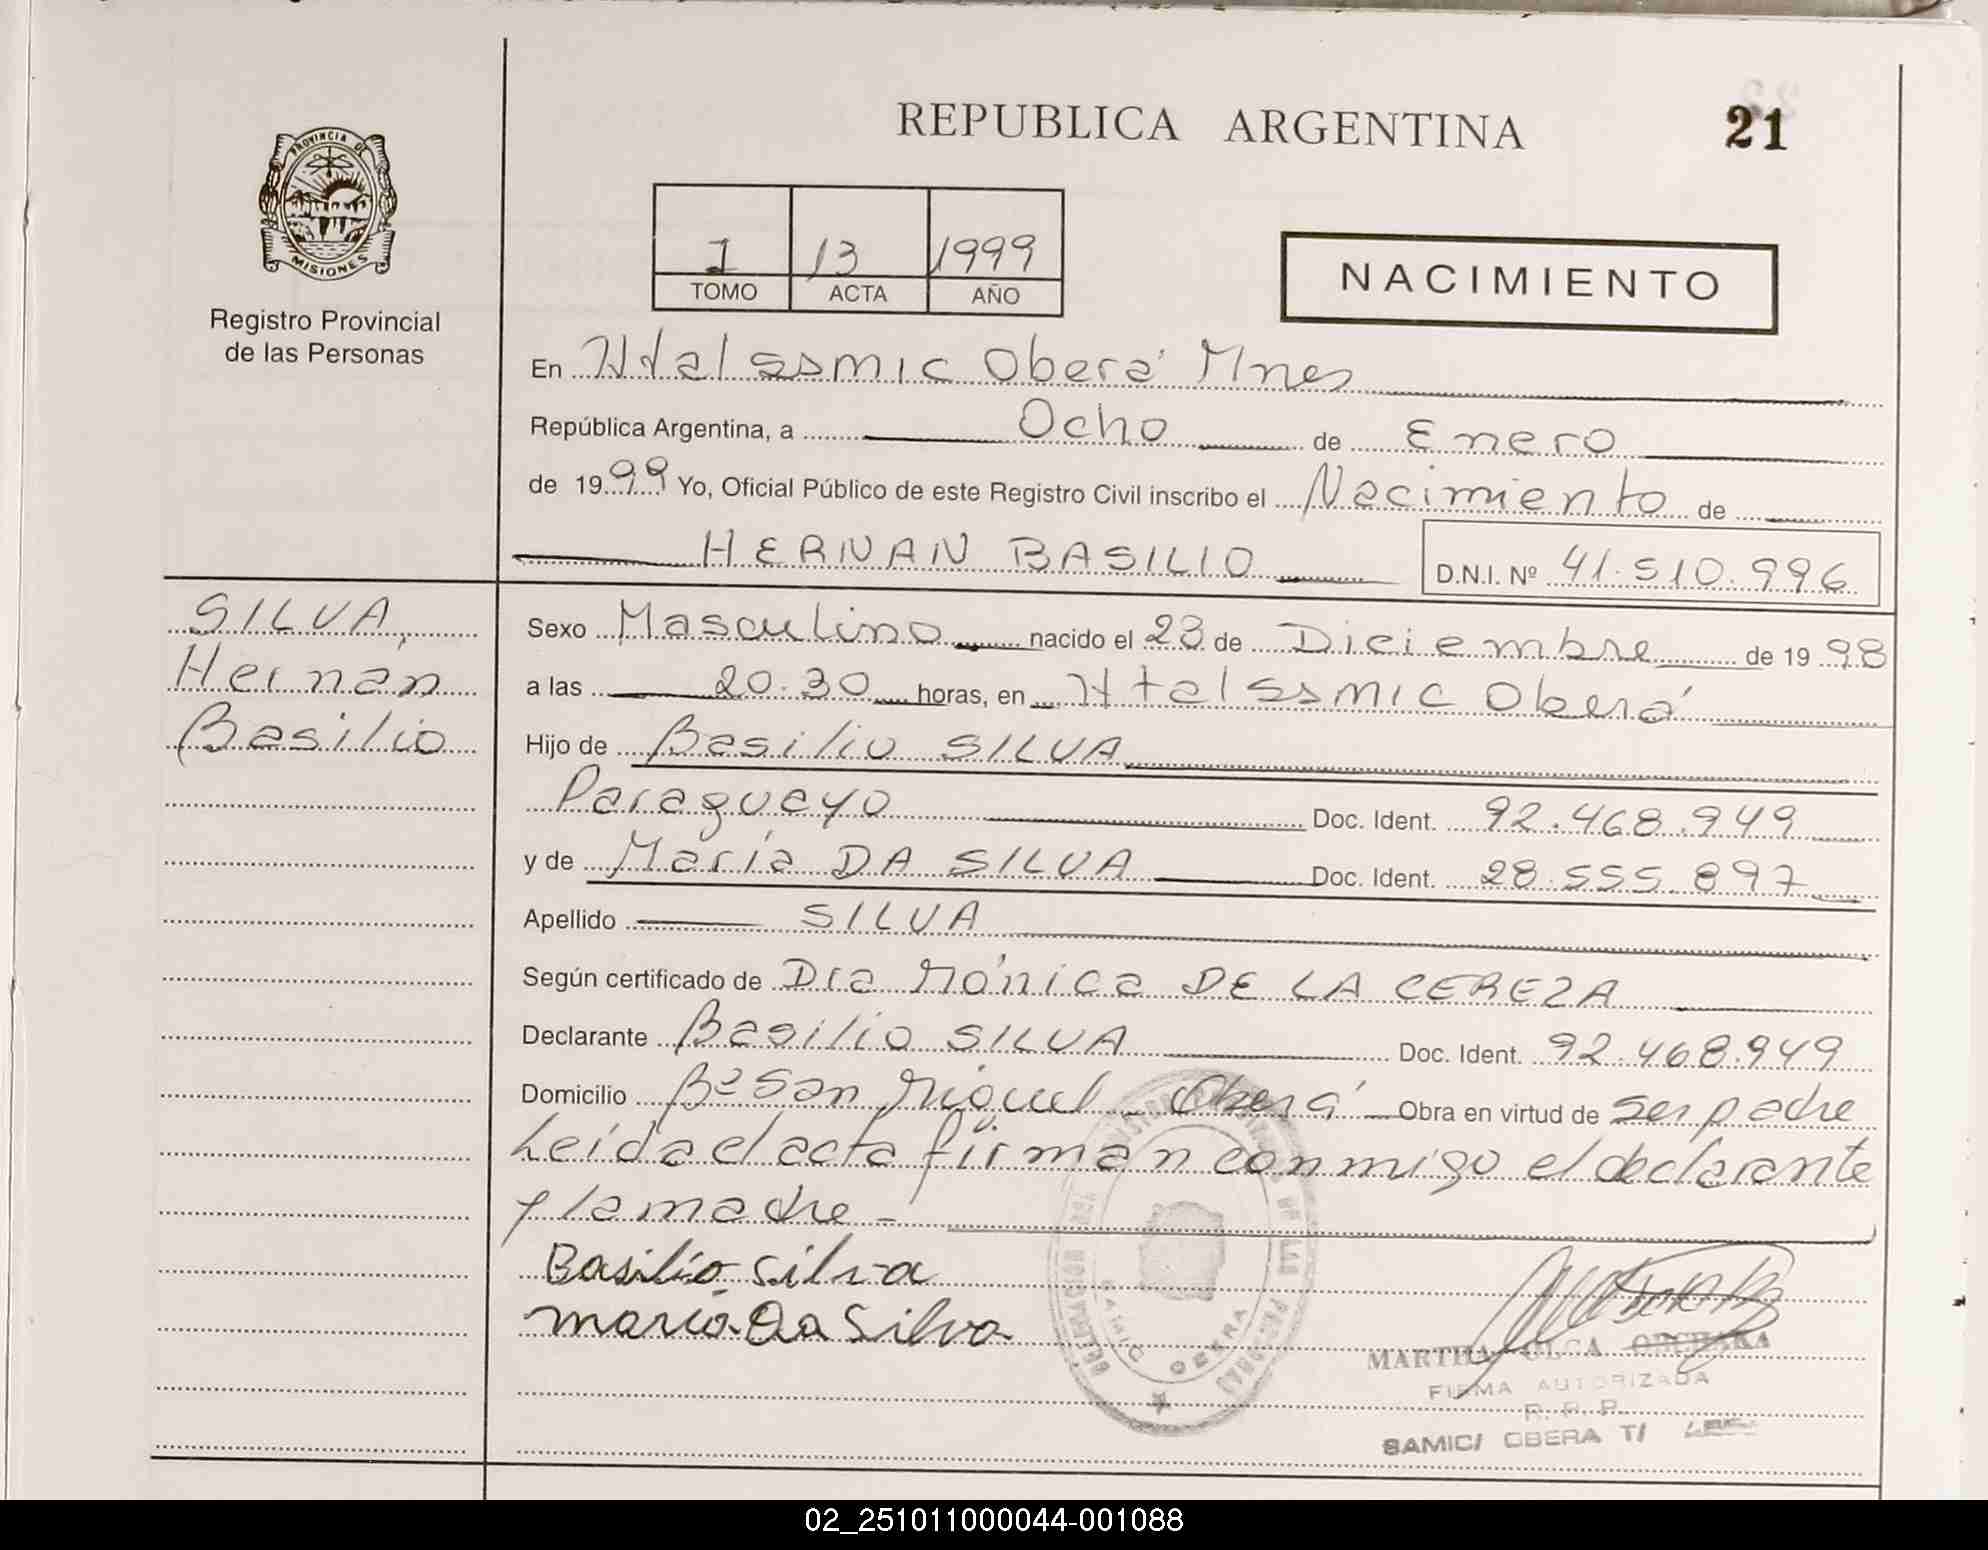 REPUBLICA ARGENTINA
21
PROVINCIA DE
MISIONES
Registro Provincial
de las Personas
1 13 1999
TOMO ACTA AÑO
NACIMIENTO
En Htal ssmic Oberá Mnes
República Argentina, a Ocho de Enero
de 1999 Yo, Oficial Público de este Registro Civil inscribo el Nacimiento de
HERNAN BASILIO D.N.I. Nº 41.510.996
SILVA,
Hernán
Basilio
Sexo Masculino nacido el 23 de Diciembre de 1998
a las 20.30 horas, en Htal ssmic Oberá
Hijo de Basilio SILVA
Paraguayo Doc. Ident. 92.468.949
y de María DA SILVA Doc. Ident. 28.555.897
Apellido SILVA
Según certificado de Dra Mónica DE LA CEREZA
Declarante Basilio SILVA Doc. Ident. 92.468.949
Domicilio Bº San Miguel - Oberá - Obra en virtud de ser padre
Leída el acta firman conmigo el declarante
y la madre -
Basilio Silva
maria Da Silva
MARTHA OLGA
FIRMA AUTORIZADA
R. P. P.
SAMIC/ OBERA T/
OBERA
02_251011000044-001088